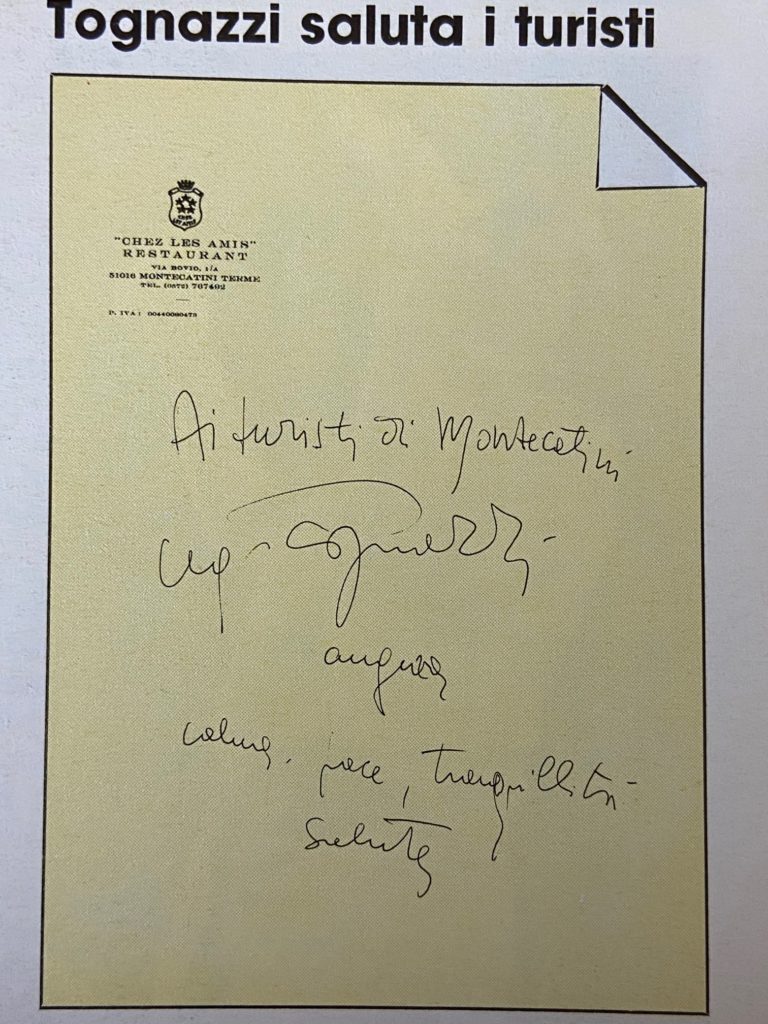 Tognazzi saluta i turisti
"CHEZ LES AMIS"
RESTAURANT
VIA BOVIO, 1/A
51016 MONTECATINI TERME
TEL. (0572) 767402
P. IVA : 00440080473
Ai turisti di Montecatini
Ugo Tognazzi
augura
calma, pace, tranquillità
salute